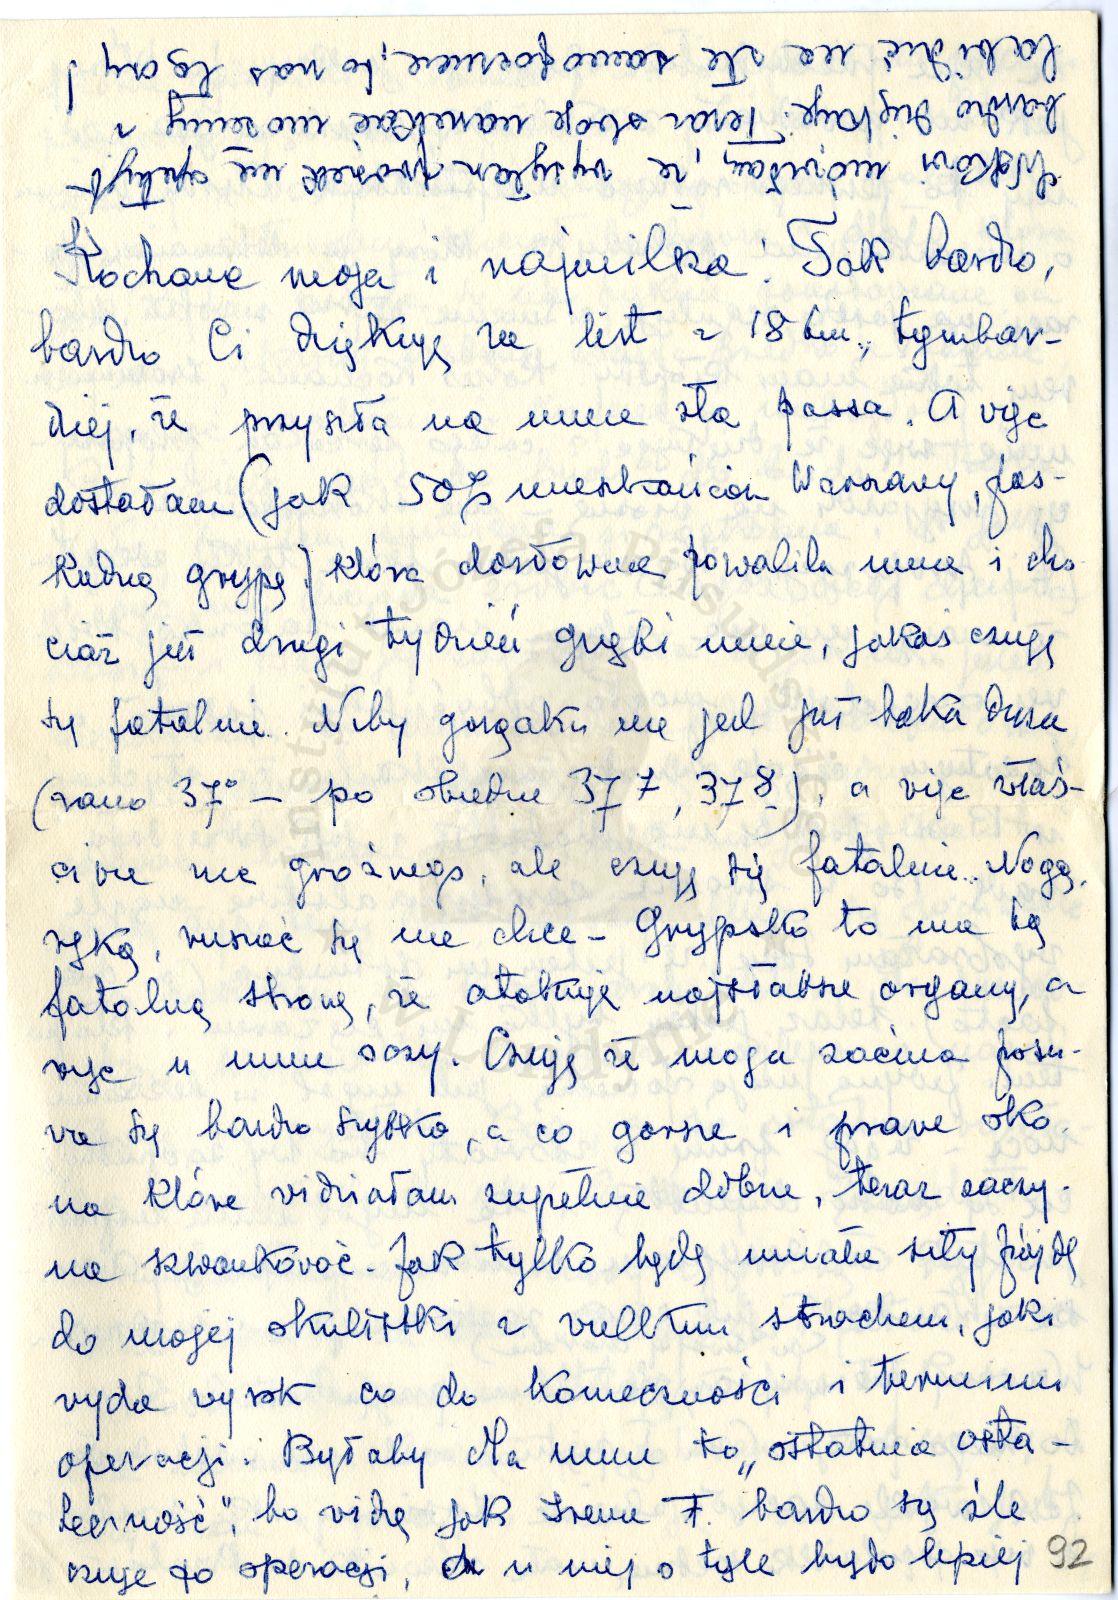 Kochana moja i najmilsza! Tak bardzo,
bardzo Ci dziękuję za list z 18 bm., tymbar-
dziej, że przyszła na mnie zła passa. A więc
dostałam (jak 50% mieszkańców Warszawy, pas-
kudną grypę) która dosłownie powaliła mnie i cho
ciaż już drugi tydzień gnębi mnie, jakoś czuję
się fatalnie. Niby gorączka nie jest już taka duża
(rano 37° – po obiedzie 37 7, 37 8), a więc właś-
ciwie nic groźnego, ale czuję się fatalnie. Nogą,
ręką, ruszać się nie chce – Grypsko to ma tą
fatalną stronę, że atakuje najsłabsze organy, a
więc u mnie oczy. Czuję że moja zaćma posu-
wa się bardzo szybko, a co gorsze i prawe oko.
na które widziałam zupełnie dobrze, teraz zaczy-
na szwankować. Jak tylko będę miała siły pójdę
do mojej okulistki z wielkim strachem, jaki
wyda wyrok co do konieczności i terminu
operacji. Byłaby dla mnie to „ostatnia osta-
teczność", bo widzę jak Irena F. bardzo się źle
czuje po operacji, a u niej o tyle było lepiej
92
mówiłam, że
bardzo dziękuje. Teraz narzekać możemy i
na złe samopoczucie, to nas łączy!
Instytut Józefa Piłsudskiego
w Londynie